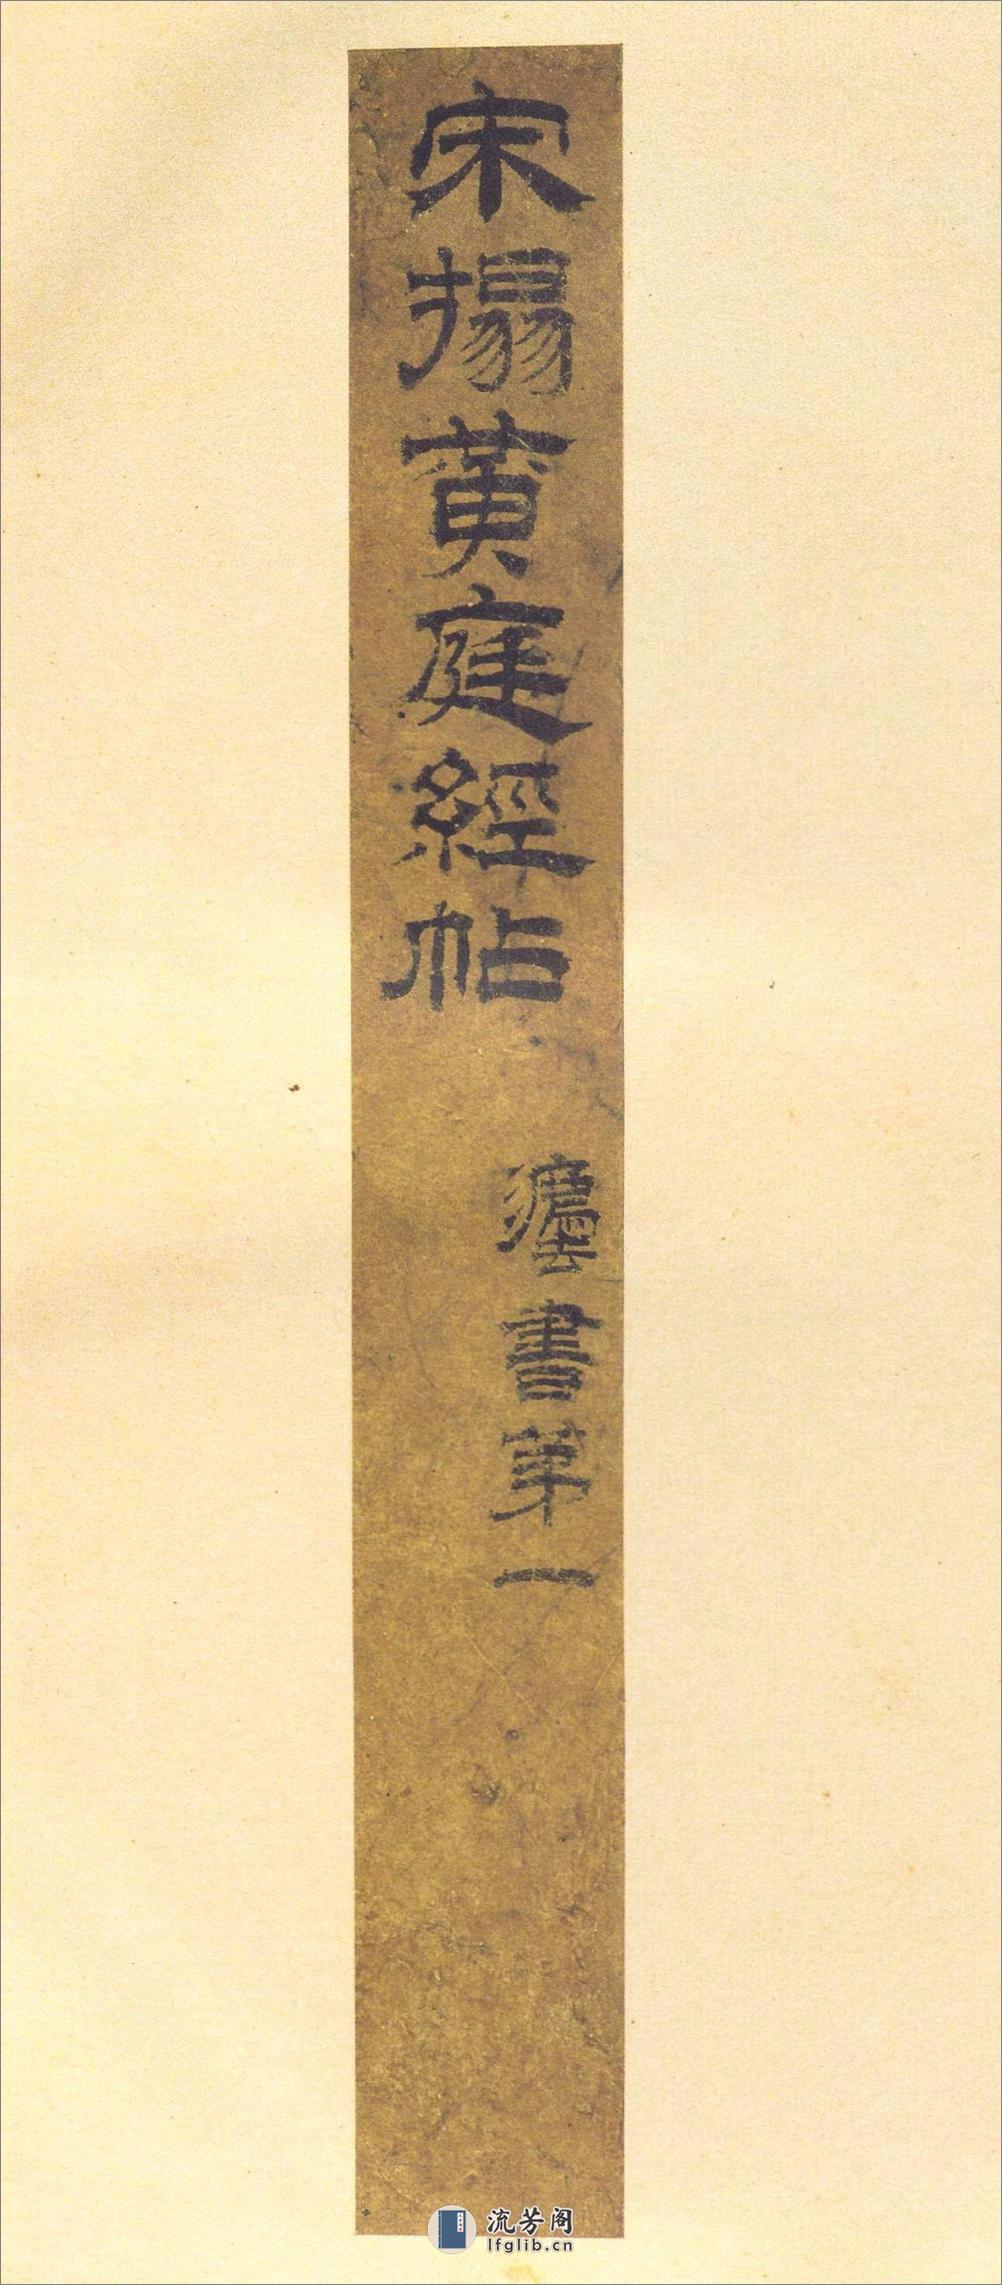 宋搨黃庭經帖
書第一
流芳阁
lfglib.cn